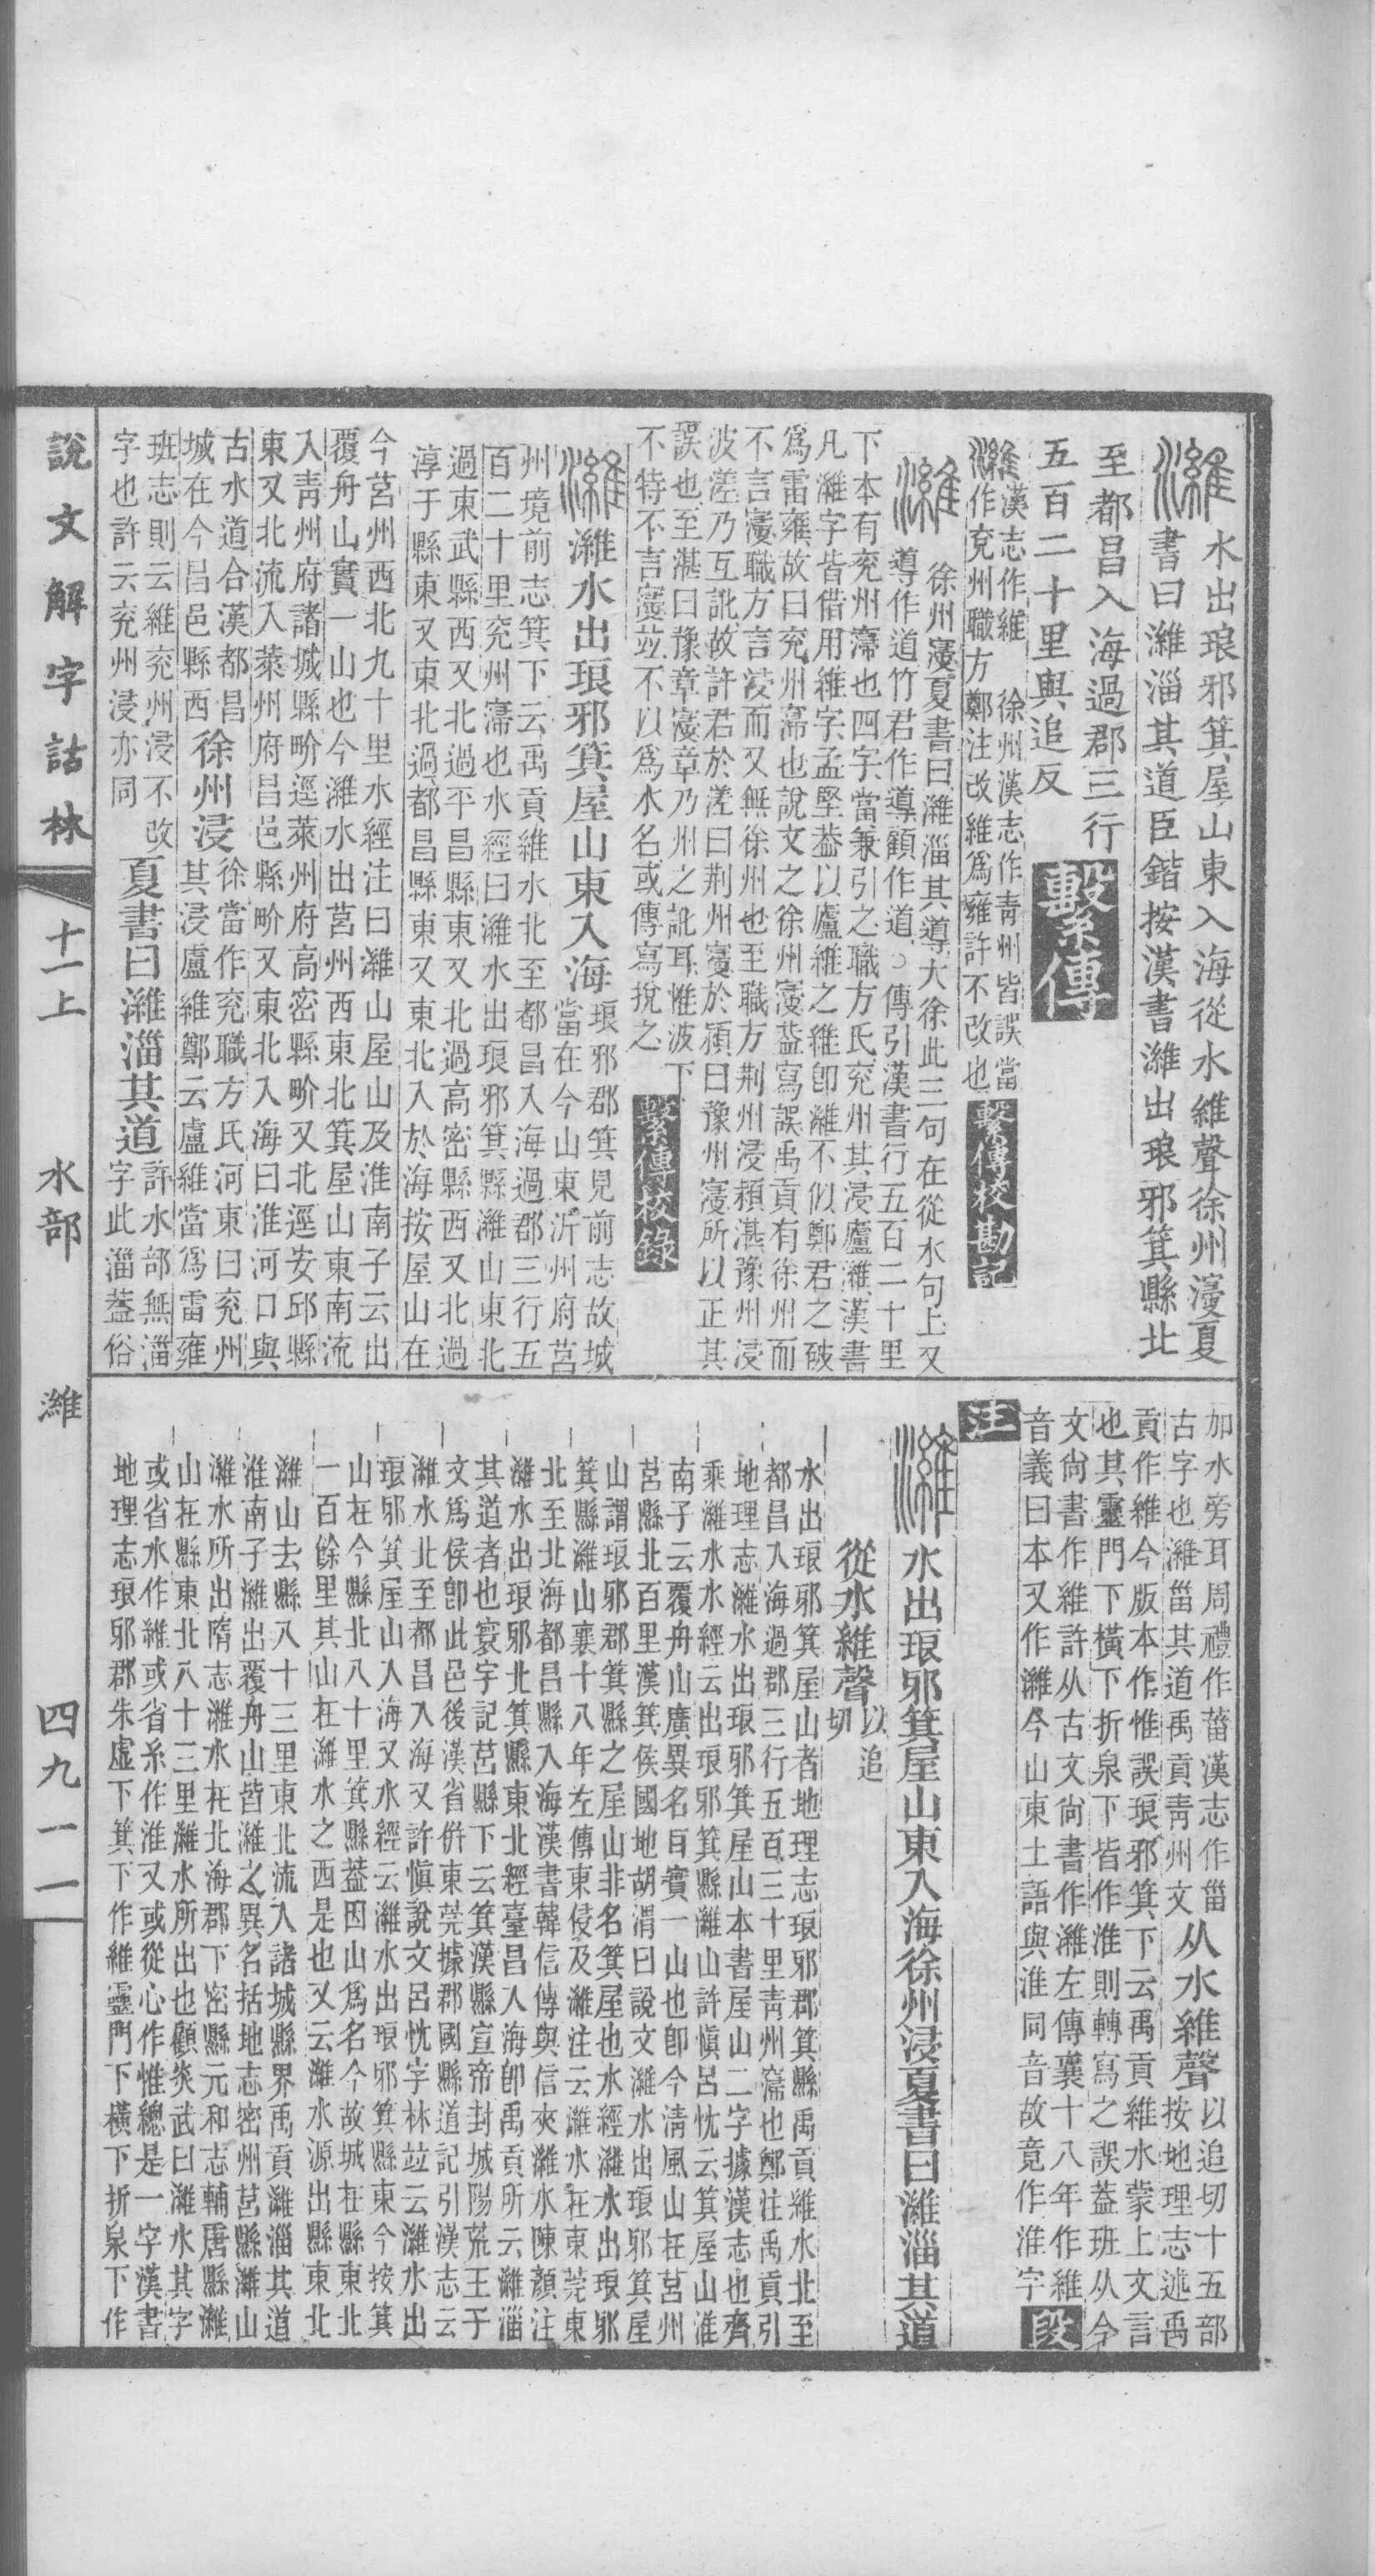 水出琅邪箕屋山東入海從水維聲徐州濅夏
書曰濰淄其道臣鍇按漢書濰出琅邪箕縣北
至都昌入海過郡三行
五百二十里與追反 繫傳
濰漢志作維 徐州漢志作青州皆誤當
作兗州職方鄭注改維爲雍許不改也 繫傳校勘記
濰 徐州濅夏書曰濰淄其導大徐此三句在從水句上又
導作道竹君作導顧作道○傳引漢書行五百二十里
下本有兗州濅也四字當兼引之職方氏兗州其浸廬濰漢書
凡濰字皆借用維字孟堅葢以廬維之維卽濰不似鄭君之破
爲雷雍故曰兗州濅也說文之徐州濅葢寫誤禹貢有徐州而
不言濅職方言浸而又無徐州也至職方荆州浸潁湛豫州浸
波溠乃互訛故許君於溠曰荆州濅於潁曰豫州濅所以正其
誤也至湛曰豫章濅章乃州之訛耳惟波下
不特不言濅竝不以爲水名或傳寫捝之 繫傳校錄
濰 濰水出琅邪箕屋山東入海琅邪郡箕見前志故城
當在今山東沂州府莒
州境前志箕下云禹貢維水北至都昌入海過郡三行五
百二十里兗州濅也水經曰濰水出琅邪箕縣濰山東北
過東武縣西又北過平昌縣東又北過高密縣西又北過
淳于縣東又東北過都昌縣東又東北入於海按屋山在
今莒州西北九十里水經注曰濰山屋山及淮南子云出
覆舟山實一山也今濰水出莒州西東北箕屋山東南流
入青州府諸城縣畍逕萊州府高密縣畍又北逕安邱縣
東又北流入萊州府昌邑縣畍又東北入海曰淮河口與
古水道合漢都昌
城在今昌邑縣西徐州浸徐當作兗職方氏河東曰兗州
其浸盧維鄭云盧維當爲雷雍
班志則云維兗州浸不改
字也許云兗州浸亦同夏書曰濰淄其道許水部無淄
字此淄葢俗
加水旁耳周禮作菑漢志作甾
古字也濰甾其道禹貢青州文从水維聲以追切十五部
按地理志述禹
貢作維今版本作惟誤琅邪箕下云禹貢維水蒙上文言
也其靈門下橫下折泉下皆作淮則轉寫之誤葢班从今
文尚書作維許从古文尚書作濰左傳襄十八年作維
音義曰本又作濰今山東土語與淮同音故竟作淮字 段
注
濰 水出琅邪箕屋山東入海徐州浸夏書曰濰淄其道
從水維聲以追切
水出琅邪箕屋山者地理志琅邪郡箕縣禹貢維水北至
都昌入海過郡三行五百三十里青州濅也鄭注禹貢引
地理志濰水出琅邪箕屋山本書屋山二字據漢志也齊
乘濰水水經云出琅邪箕縣濰山許愼呂忱云箕屋山淮
南子云覆舟山廣異名曰實一山也卽今淸風山在莒州
莒縣北百里漢箕侯國地胡渭曰說文濰水出琅邪箕屋
山謂琅邪郡箕縣之屋山非名箕屋也水經濰水出琅邪
箕縣濰山襄十八年左傳東侵及濰注云濰水在東莞東
北至北海都昌縣入海漢書韓信傳與信夾濰水陳顏注
濰水出琅邪北箕縣東北經臺昌入海卽禹貢所云濰淄
其道者也寰宇記莒縣下云箕漢縣宣帝封城陽荒王子
文爲侯卽此邑後漢省併東莞據郡國縣道記引漢志云
濰水北至都昌入海又許愼說文呂忱字林竝云濰水出
琅邪箕屋山入海又水經云濰水出琅邪箕縣東今按箕
山在今縣北八十里箕縣葢因山爲名今故城在縣東北
一百餘里其山在濰水之西是也又云濰水源出縣東北
濰山去縣八十三里東北流入諸城縣界禹貢濰淄其道
淮南子濰出覆舟山皆濰之異名括地志密州莒縣濰山
濰水所出隋志濰水在北海郡下密縣元和志輔唐縣濰
山在縣東北八十三里濰水所出也顧炎武曰濰水其字
或省水作維或省糸作淮又或從心作惟總是一字漢書
地理志琅邪郡朱虛下箕下作維靈門下橫下折泉下作
說文解字詁林 十一上 水部 濰 四九一一